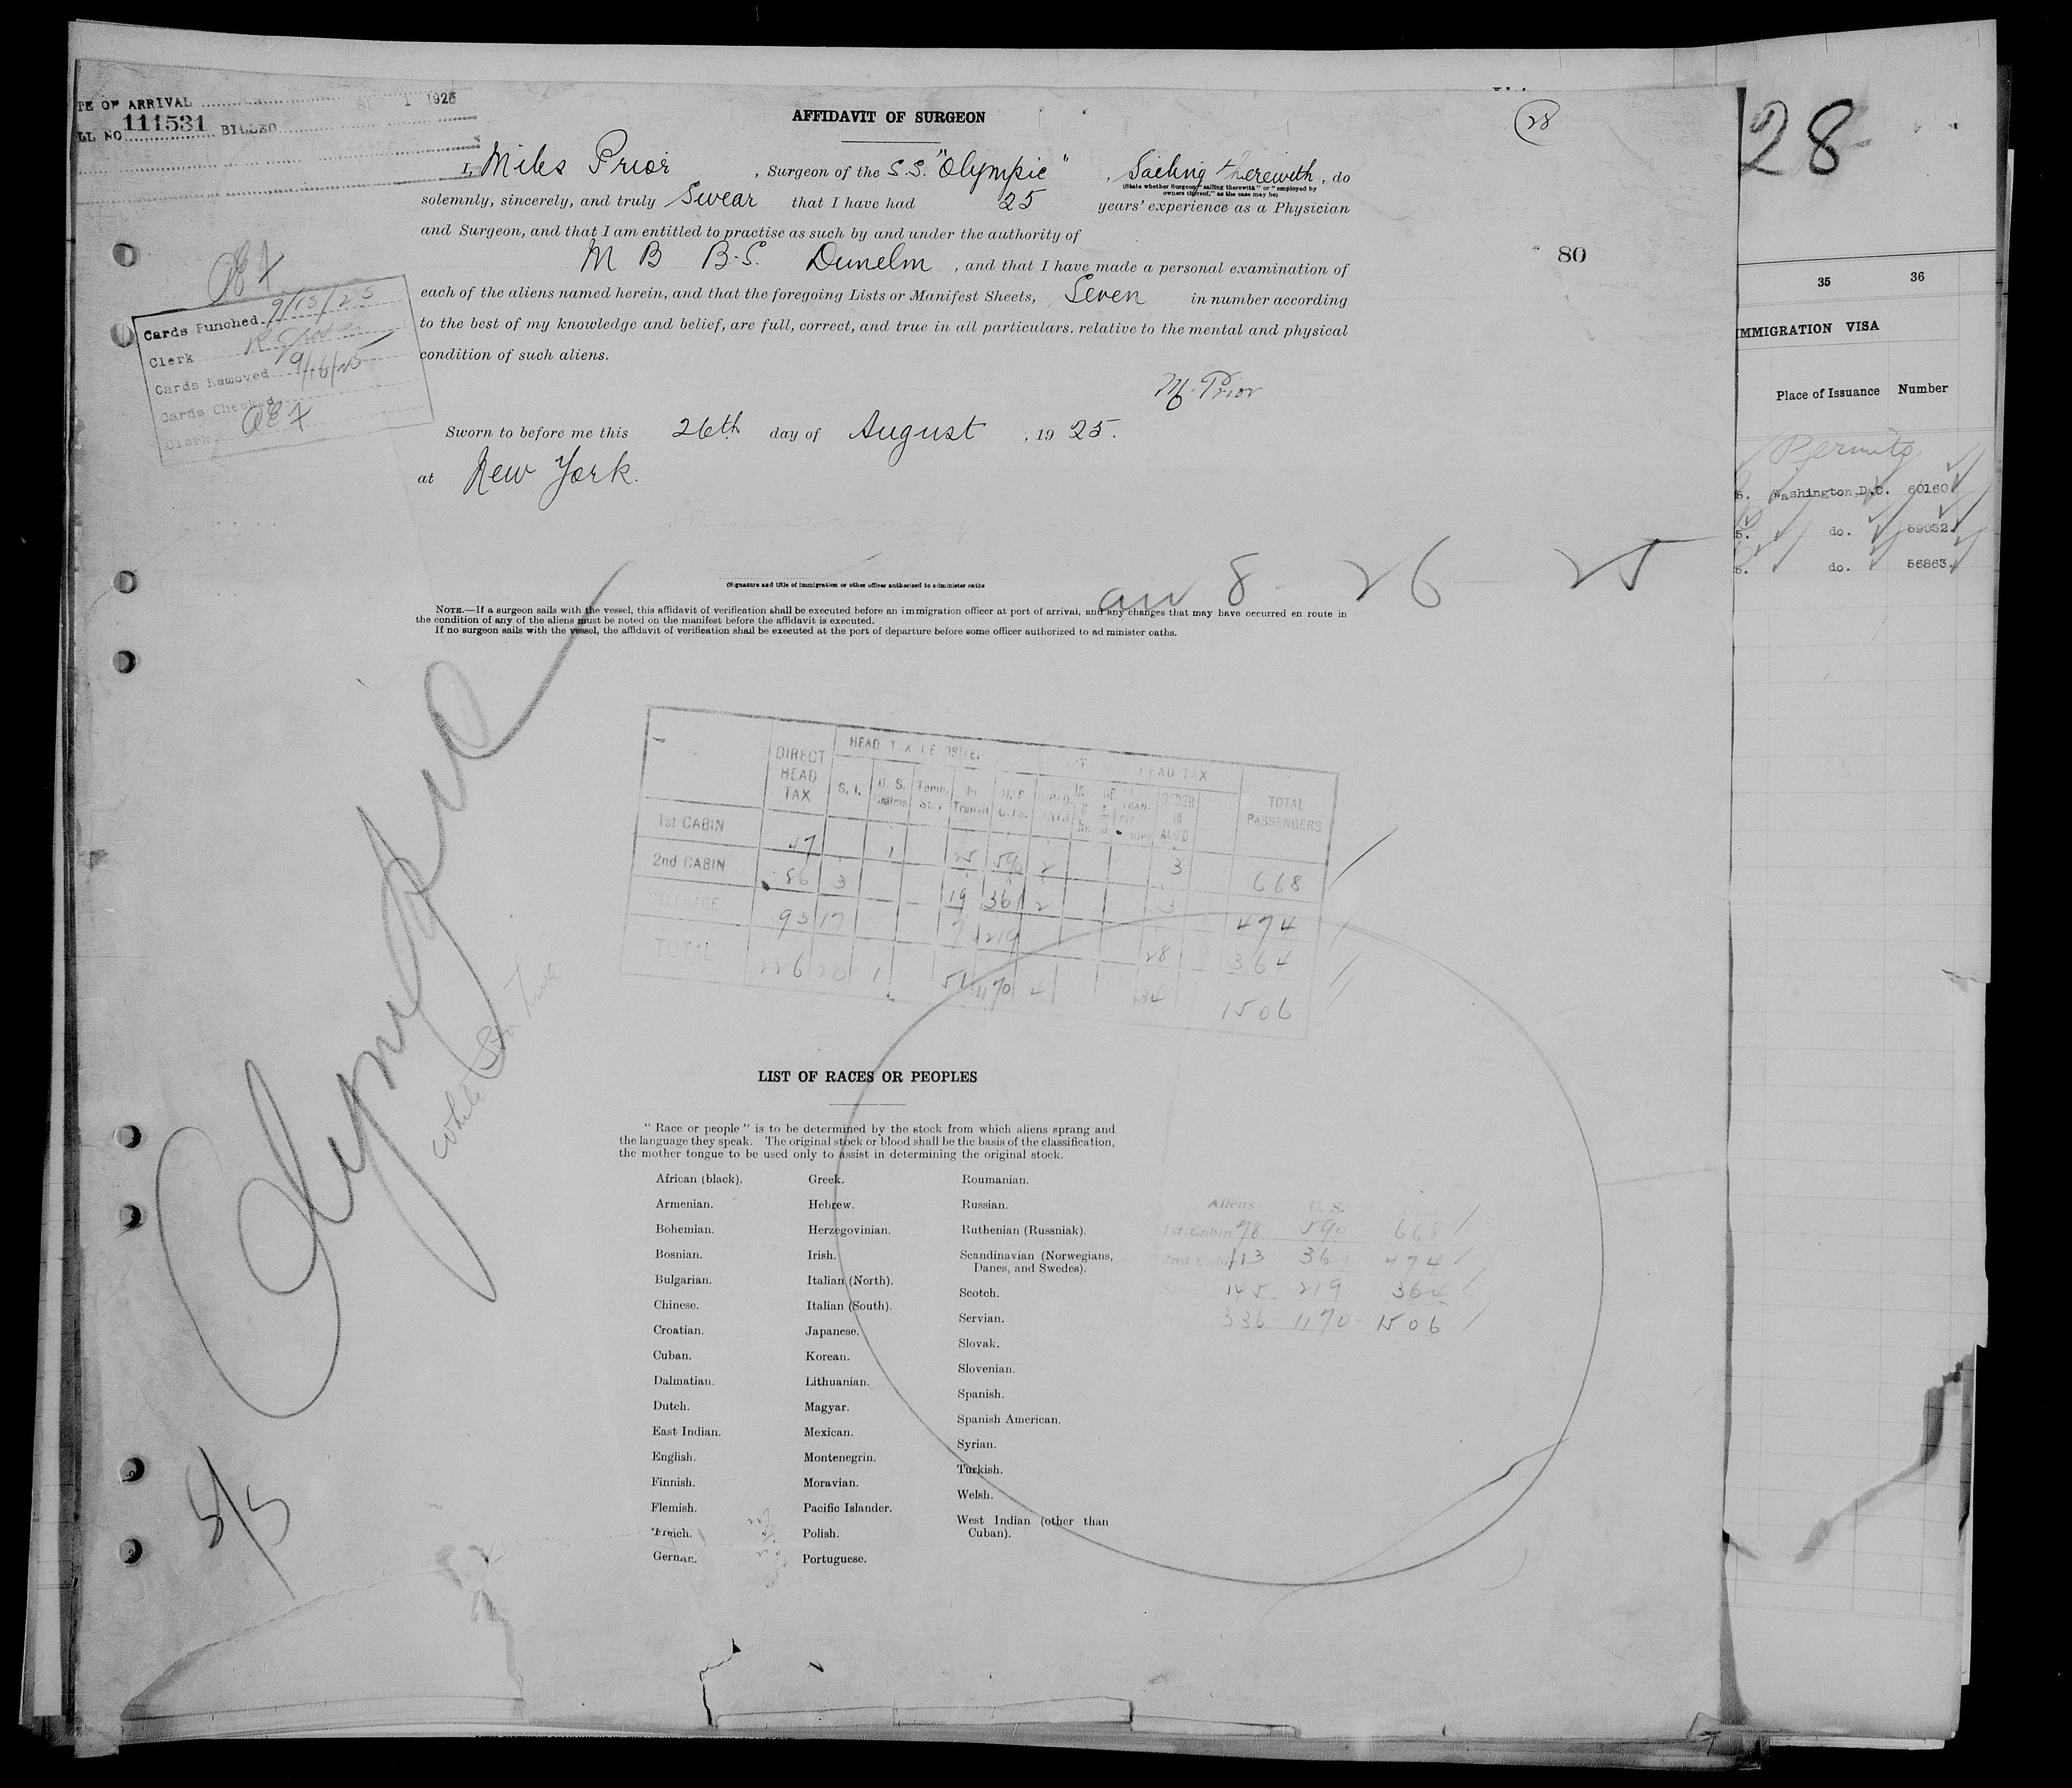 PE OF ARRIVAL 1 1925
LL NO 111531 BILLED
AFFIDAVIT OF SURGEON
28
I, Miles Prior, Surgeon of the S.S. "Olympic", Sailing therewith, do
(State whether Surgeon "sailing therewith" or "employed by
owners thereof," as the case may be)
solemnly, sincerely, and truly Swear that I have had 25 years' experience as a Physician
and Surgeon, and that I am entitled to practise as such by and under the authority of
M B B.S. Dunelm, and that I have made a personal examination of
each of the aliens named herein, and that the foregoing Lists or Manifest Sheets, Seven in number according
to the best of my knowledge and belief, are full, correct, and true in all particulars. relative to the mental and physical
condition of such aliens.
M. Prior
Sworn to before me this 26th day of August, 1925.
at New York.
80
Cards Punched 9/15/25
Clerk
Cards Removed 9/16/25
Cards Checked
Clerk
(Signature and title of immigration or other officer authorized to administer oaths
8 26 25
NOTE.—If a surgeon sails with the vessel, this affidavit of verification shall be executed before an immigration officer at port of arrival, and any changes that may have occurred en route in
the condition of any of the aliens must be noted on the manifest before the affidavit is executed.
If no surgeon sails with the vessel, the affidavit of verification shall be executed at the port of departure before some officer authorized to ad minister oaths.
Olympic
White Star Line
5/5
DIRECT HEAD TAX
HEAD TAX
HEAD TAX
TOTAL PASSENGERS
S. I. U. S. Transit
1st CABIN 47 1 25 590 2 3 668
2nd CABIN 86 3 19 361 2 3 474
STEERAGE 93 17 7 219 28 364
TOTAL 226 20 1 51 1170 4 34 1506
LIST OF RACES OR PEOPLES
"Race or people" is to be determined by the stock from which aliens sprang and
the language they speak. The original stock or blood shall be the basis of the classification,
the mother tongue to be used only to assist in determining the original stock.
African (black).
Armenian.
Bohemian.
Bosnian.
Bulgarian.
Chinese.
Croatian.
Cuban.
Dalmatian.
Dutch.
East Indian.
English.
Finnish.
Flemish.
French.
German.
Greek.
Hebrew.
Herzegovinian.
Irish.
Italian (North).
Italian (South).
Japanese.
Korean.
Lithuanian.
Magyar.
Mexican.
Montenegrin.
Moravian.
Pacific Islander.
Polish.
Portuguese.
Roumanian.
Russian.
Ruthenian (Russniak).
Scandinavian (Norwegians,
Danes, and Swedes).
Scotch.
Servian.
Slovak.
Slovenian.
Spanish.
Spanish American.
Syrian.
Turkish.
Welsh.
West Indian (other than
Cuban).
Aliens U. S.
1st Cabin 78 590 668
2nd Cabin 113 361 474
145 219 364
336 1170 1506
28
35 36
IMMIGRATION VISA
Place of Issuance Number
Permits
5. Washington, D.C. 60160
5. do. 59032.
5. do. 56863.